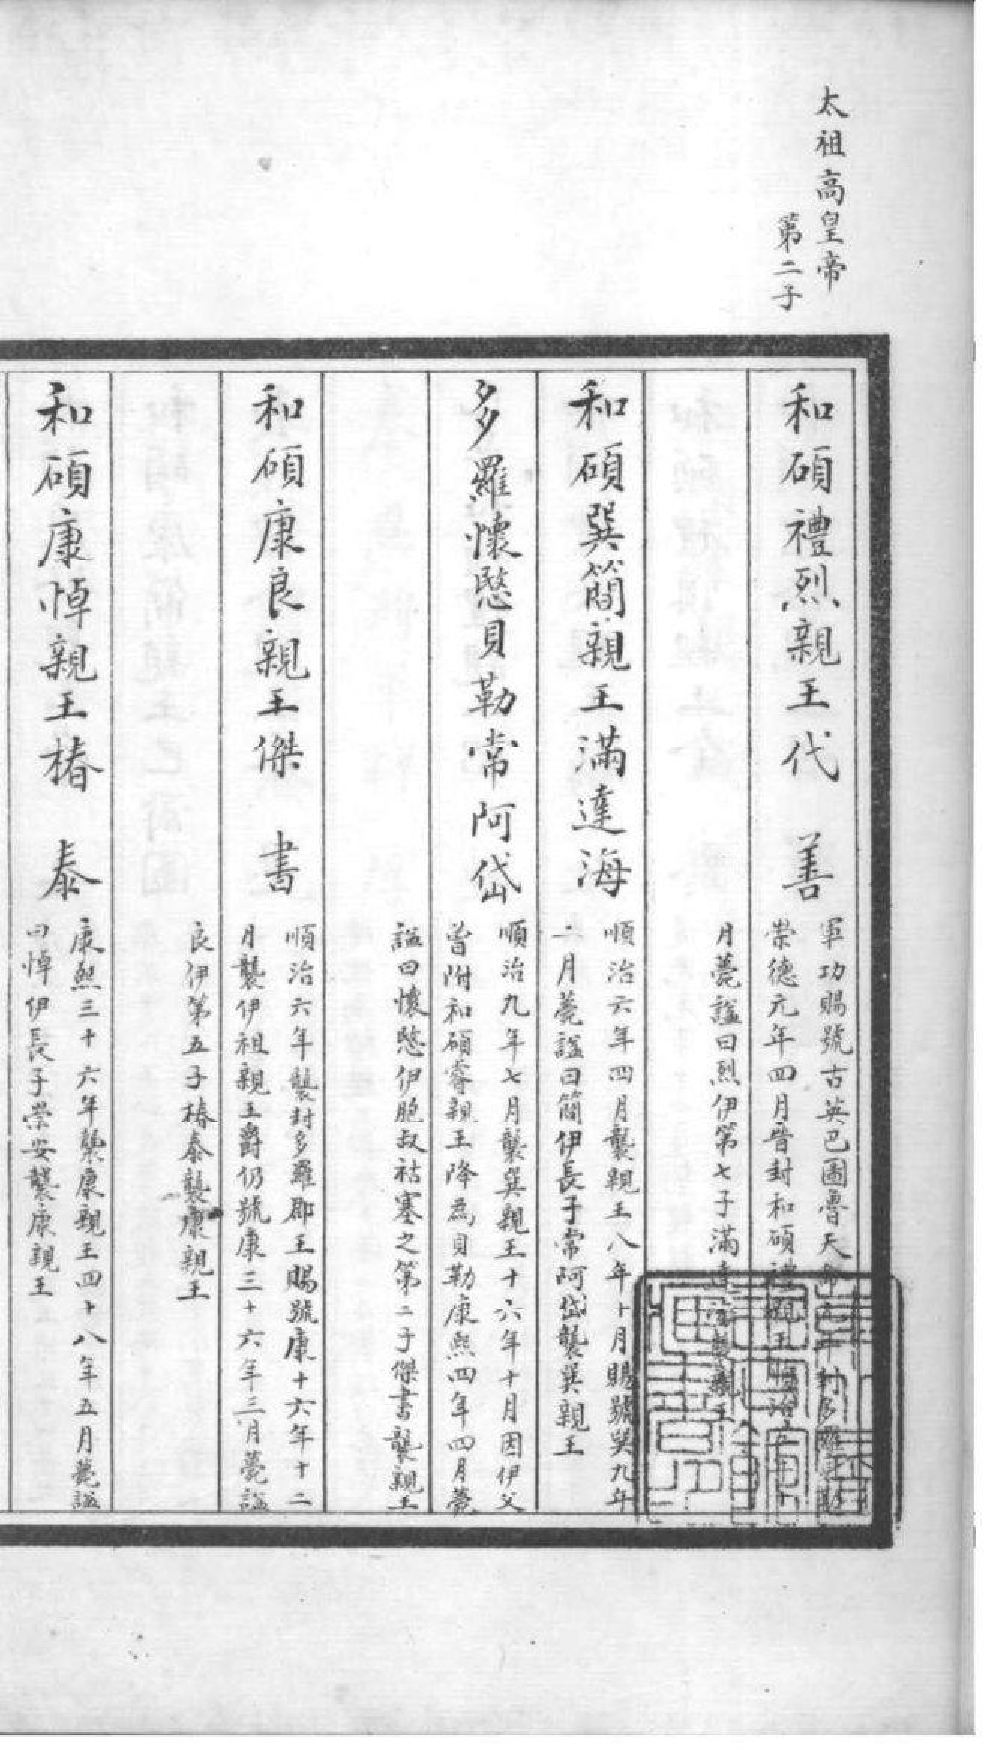 太祖高皇帝
第二子
和碩禮烈親王代善
軍功賜號古英巴圖魯天命元年封多羅貝勒
崇德元年四月晉封和碩禮親王順治五年十
月薨諡曰烈伊第七子滿達海襲親王
和碩巽簡親王滿達海
順治六年四月襲親王八年十月賜號巽九年
一月薨諡曰簡伊長子常阿岱襲巽親王
多羅懷愍貝勒常阿岱
順治九年七月襲巽親王十六年十月因伊父
曾附和碩睿親王降為貝勒康熙四年四月薨
諡曰懷愍伊胞叔祜塞之第二子傑書襲親王
和碩康良親王傑書
順治六年襲封多羅郡王賜號康十六年十二
月襲伊祖親王爵仍號康三十六年三月薨諡
良伊第五子椿泰襲康親王
和碩康悼親王椿泰
康熙三十六年襲康親王四十八年五月薨諡
曰悼伊長子崇安襲康親王